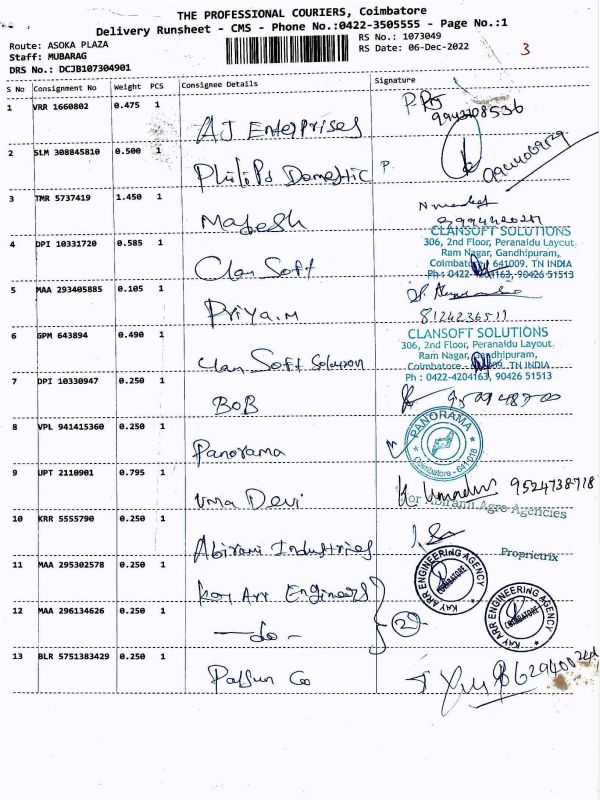 THE PROFESSIONAL COURIERS, Coimbatore
Delivery Runsheet - CMS - Phone No.:0422-3505555 - Page No.:1
Route: ASOKA PLAZA
RS No.: 1073049
Staff: MUBARAG
RS Date: 06-Dec-2022
3
DRS No.: DCJB107304901
S No Consignment No Weight PCS Consignee Details Signature
1 VRR 1660802 0.475 1
AJ Enterprises
2 SLM 308845810 0.500 1
Philips Domestic P.
3 TMR 5737419 1.450 1
Mahesh
4 DPI 10331720 0.585 1
Clan Soft
CLANSOFT SOLUTIONS
306, 2nd Floor, Peranaidu Layout,
Ram Nagar, Gandhipuram,
Coimbatore 641009. TN INDIA
Ph : 0422- 4163, 90426 51513
5 MAA 293405885 0.105 1
Priya.M
8124236511
6 GPM 643894 0.490 1
Clan Soft Solution
CLANSOFT SOLUTIONS
306, 2nd Floor, Peranaidu Layout,
Ram Nagar, Gandhipuram,
Coimbatore - 009. TN INDIA
Ph : 0422-4204163, 90426 51513
7 DPI 10330947 0.250 1
BOB
8 VPL 941415360 0.250 1
Panorama
PANORAMA
Coimbatore - 641 018
9 UPT 2110901 0.795 1
Uma Devi
K Umadevi 9524738718
For Abirami Agro Agencies
10 KRR 5555790 0.250 1
Abirami Industries
Proprietrix
11 MAA 295302578 0.250 1
Kay Arr Engineers
KAY ARR ENGINEERING AGENCY
COIMBATORE
12 MAA 296134626 0.250 1
-do-
2
KAY ARR ENGINEERING AGENCY
COIMBATORE
13 BLR 5751383429 0.250 1